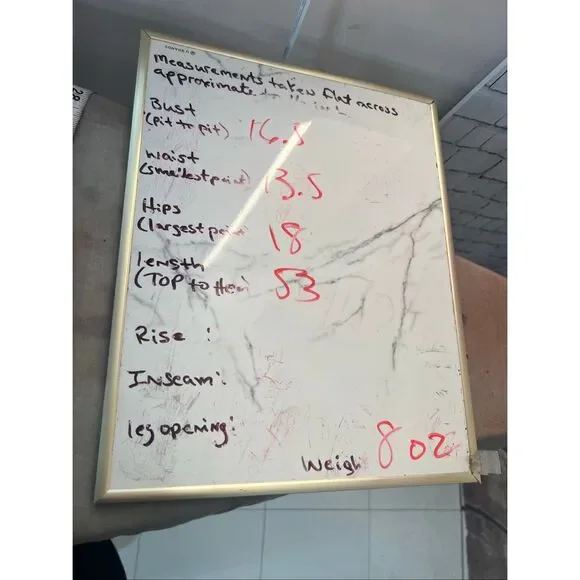 Measurements taken flat across
approximate
Bust
(pit to pit) 16.5
Waist
(smallest point) 13.5
Hips
(largest poin 18
length
(TOP to Hem) 53
Rise :
Inseam:
leg opening:
Weigh 8 oz